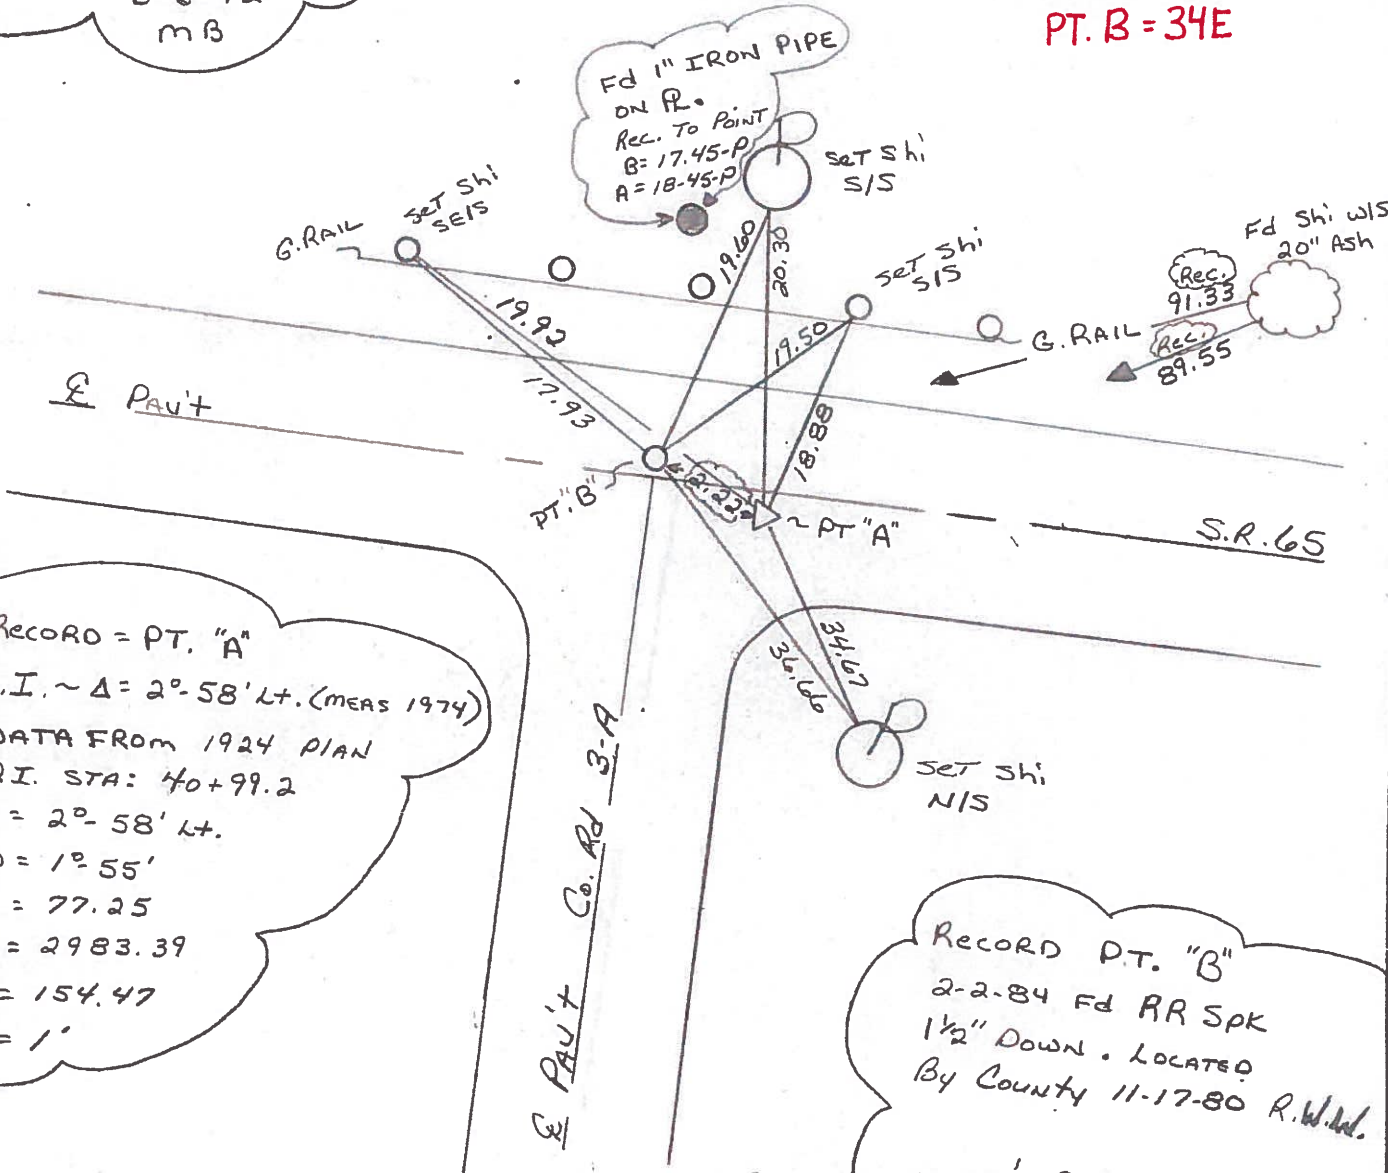 MB
PT. B = 34E
Fd 1" IRON PIPE
ON PL.
Rec. To POINT
B= 17.45-P
A= 18-45-P
SeT Shi
S/S
SeT Shi
SE/S
G.RAIL
SeT Shi
S/S
Fd Shi W/S
20" Ash
Rec.
91.33
G. RAIL
Rec.
89.55
19.60
20.30
19.92
17.93
19.50
18.88
℄ PAV't
PT. "B"
2.22
~ PT "A"
S.R. 65
36.66
34.67
SeT Shi
N/S
RECORD = PT. "A"
.I. ~ Δ = 2°-58' Lt. (MEAS 1974)
DATA FROM 1924 PLAN
P.I. STA: 40+99.2
= 2°-58' Lt.
D = 1°-55'
= 77.25
= 2983.39
= 154.47
= 1'
℄ PAV't Co. Rd 3-A
RECORD P.T. "B"
2-2-84 Fd RR SPK
1½" DOWN. LOCATED
By COUNTY 11-17-80 R.W.W.